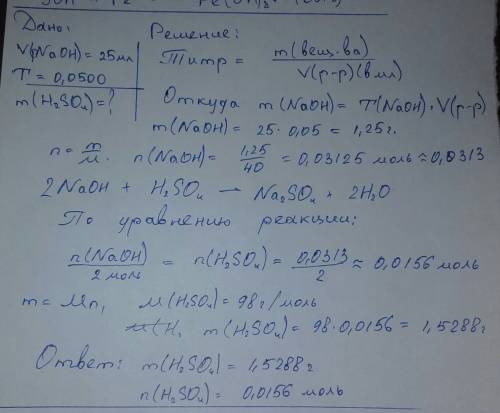 Дано:
V(NaOH) = 25 мл
T = 0,0500
m(H₂SO₄) = ?
Решение:
Титр = m(вещ-ва) / V(р-р)(в мл)
Откуда m(NaOH) = T(NaOH) · V(р-р)
m(NaOH) = 25 · 0,05 = 1,25 г.
n = m/M. n(NaOH) = 1,25/40 = 0,03125 моль ≈ 0,0313
2NaOH + H₂SO₄ → Na₂SO₄ + 2H₂O
По уравнению реакции:
n(NaOH)/2 моль = n(H₂SO₄) = 0,0313/2 ≈ 0,0156 моль
m = Mn, M(H₂SO₄) = 98 г/моль
m(H₂SO₄) = 98 · 0,0156 = 1,5288 г
Ответ: m(H₂SO₄) = 1,5288 г
n(H₂SO₄) = 0,0156 моль